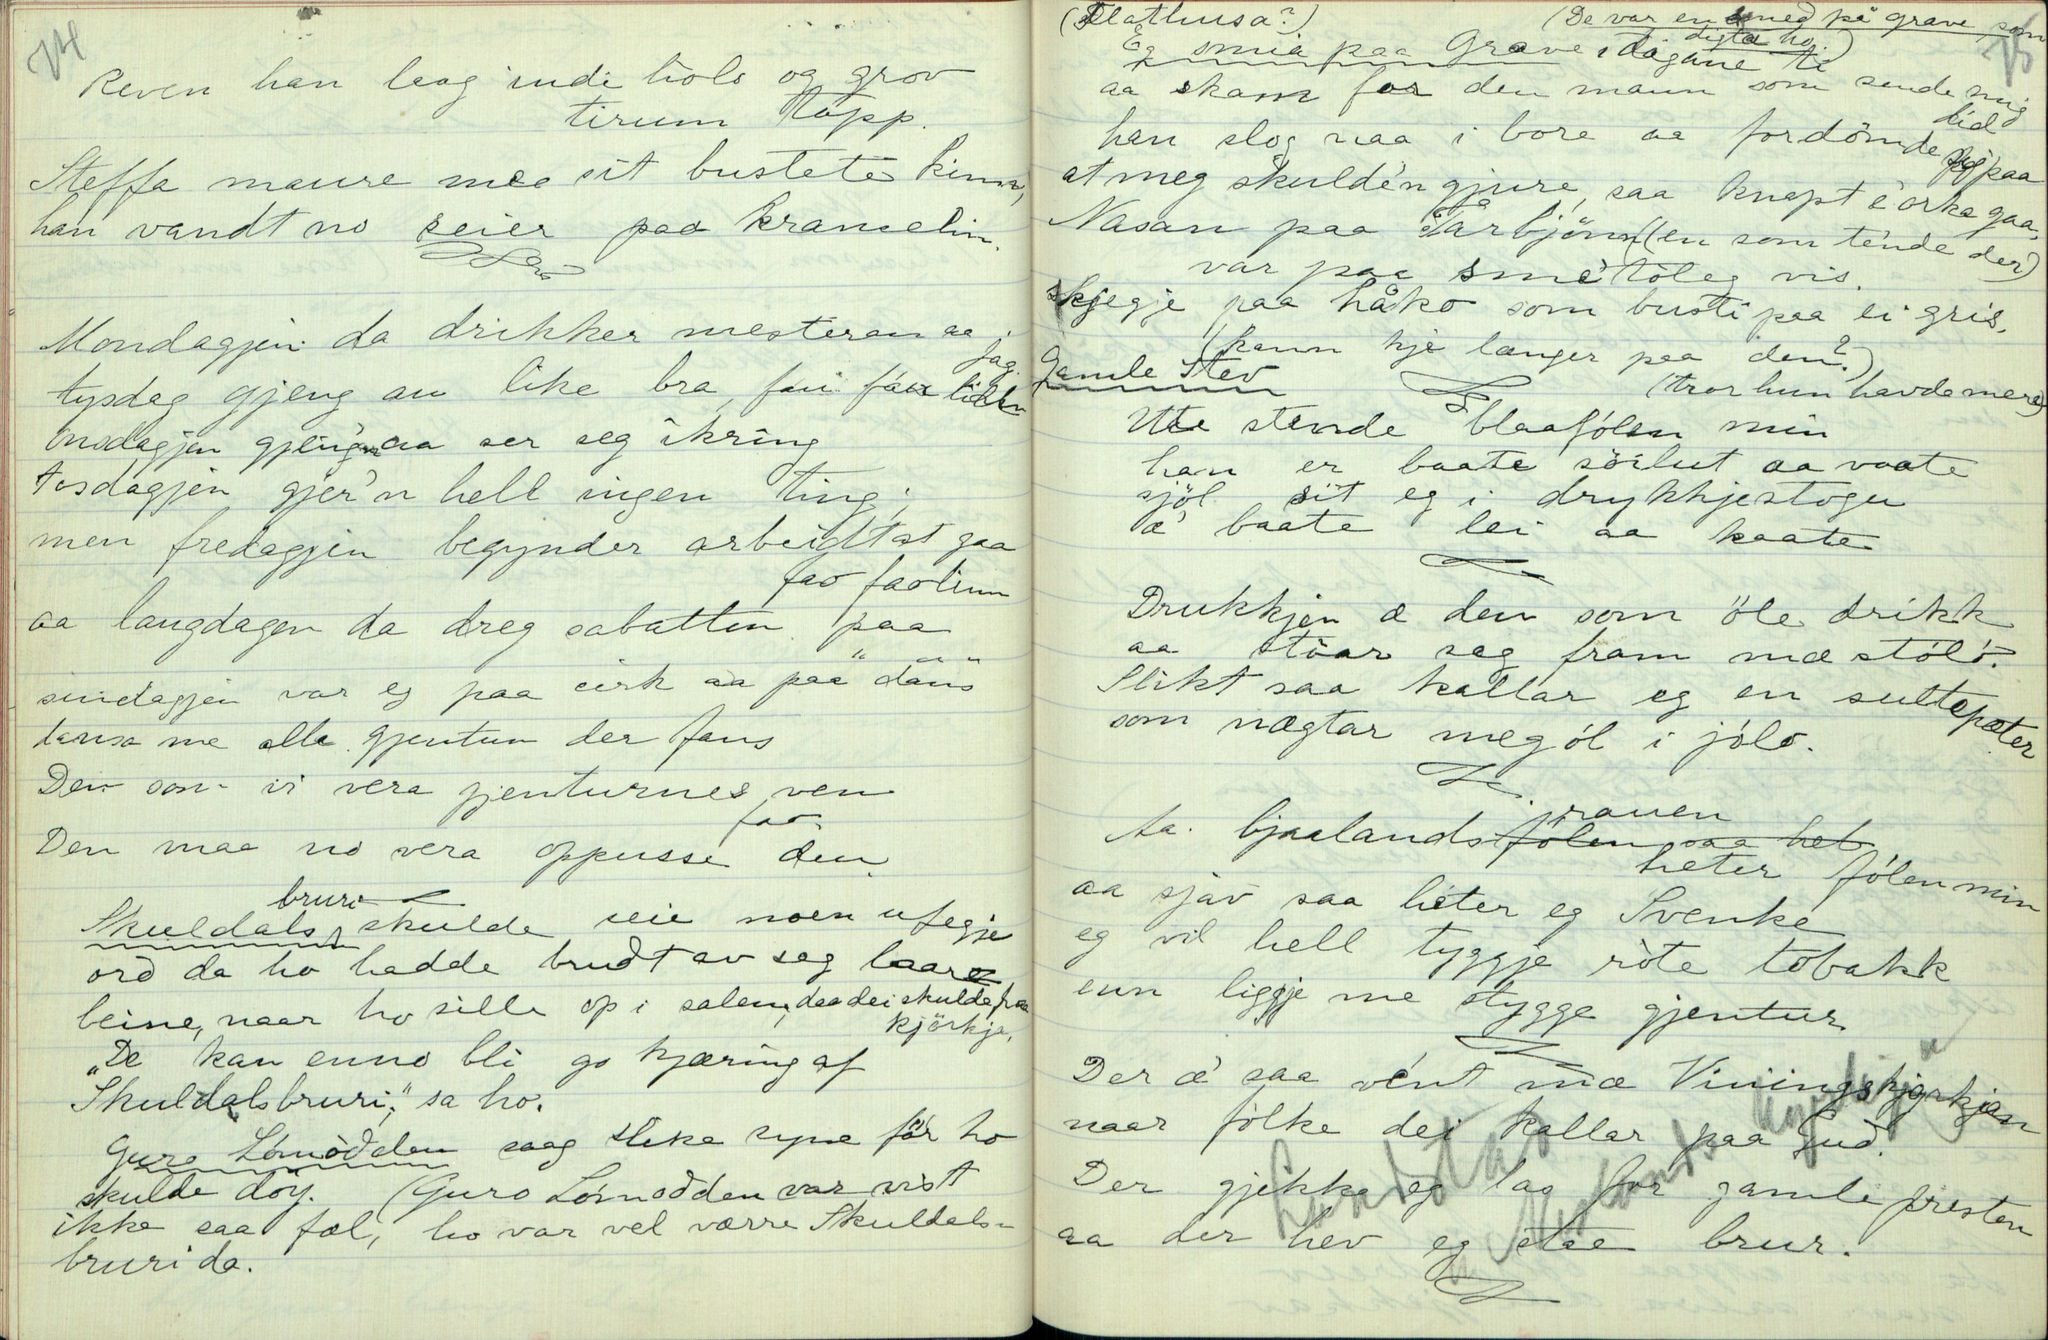 74
Reven han laag indi holo og grov
tirum tapp.
Steffa maure mee sit bustete kinn,
han vandt no seier paa kranselin.
Mondagjen da drikker mesteran aa
jag.
tysdag gjeng an like bra, fari far
onsdagjen gjeng'n aa ser seg ikring
tosdagjen gjer'n hell ingen ting;
men fredagjen begynder arbeidt at gaa
fao faolinn
aa laugdagen da dreg sabatten paa
sundagjen var eg paa cirk aa paa "dans"
dansa me alle gjentun der fans
Den som vi vera gjenturnes ven
fao.
Den maa no vera oppusse den.
Skuldalsbruri skulde seie noen ufegje
ord da ho hadde brudt av seg laare
beine, naar ho sille op i salen, daa dei skulde fraa
kjörkje.
"De kan enno bli go kjæring af
Skuldalsbruri," sa ho.
Guro Lómodden saag slike syne för ho
skulde döy. (Guro Lómodden var vist
ikke saa fæl, ho var vel værre Skuldals-
bruri da.
75
(Flathusa?) (De var en smed på Grave som
digta ho.)
Eg smia paa Grave i dagane ti
aa skam for den mann som sende mig
hid
han slog naa i bore aa fordömde sig paa
at meg skulde'n gjure, saa knapt e orka gaa.
Nasan paa Tarbjönn (en som tende der)
var paa smétöleg vis.
skjegje paa håko som busti paa ei gris.
(kann kje længer paa den?)
Gamle Stev (tror hun havde mere)
Ute stende blaafólen min
han er baate söilut aa vaate
sjöl sit eg i drykkjestogu
æ baate lei aa kaate
Drukkjen æ den som öle drikk
aa stöar seg fram mæ stóló.
Slikt saa kallar eg en sultepæter
som nægtar meg öl i jólo.
Aa bjaalandsfölen saa het
rauen
heter fólen min
aa sjav saa heter eg Svenke
eg vil hell tyggje röte tobakk
enn liggje me stygge gjentur.
Der æ saa vént mæ Viningskjørkjen
naar fólke dei kallar paa Gud.
Der gjekk eg laa for gamle presten
aa der hev eg staæ brur.